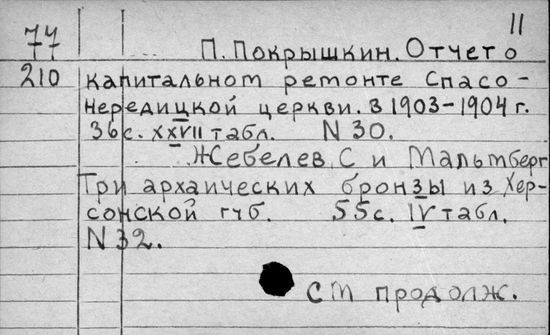 11
77 П. Покрышкин. Отчет о
210 капитальном ремонте Спасо-
Нередицкой церкви. в 1903-1904 г.
36с. XXVII табл. N 30.
Жебелев, С и Мальмберг
Три архаических бронзы из Хер-
сонской губ. 55с. IV табл.
N 32.
См продолж.